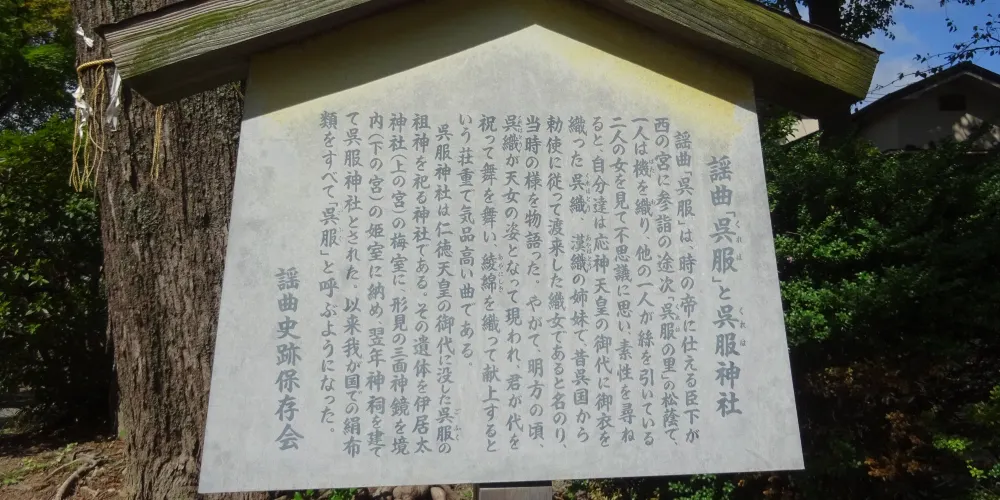 謡曲「呉服」と呉服神社
謡曲「呉服」は、時の帝に仕える臣下が
西の宮に参詣の途次「呉服の里」の松蔭で、
一人は機を織り、他の一人が絲を引いている
二人の女を見て不思議に思い、素性を尋ね
ると、自分達は応神天皇の御代に御衣を
織った呉織 漢織の姉妹で、昔呉国から
勅使に従って渡来した織女であると名のり、
当時の様を物語った。やがて、明方の頃、
呉織が天女の姿となって現われ、君が代を
祝って舞を舞い、綾錦を織って献上すると
いう荘重て気品高い曲てある。
呉服神社は仁徳天皇の御代に没した呉服の
祖神を祀る神社である。その遺体を伊居太
神社(上の宮)の梅室に、形見の三面神鏡を境
内(下の宮)の姫室に納め、翌年神祠を建て
て呉服神社とされた。以来我が国での絹布
類をすべて「呉服」と呼ぶようになった。
謡曲史跡保存会